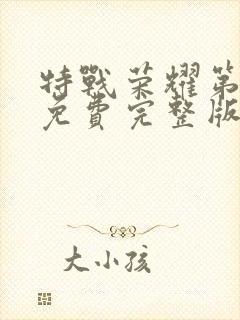 特戰荣耀第
免費完整版
大小孩